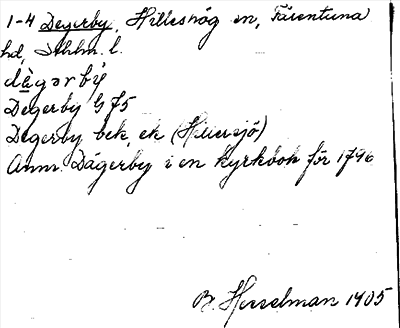 1-4 Degerby, Hilleshög sn, Färentuna
hd, Sthlm. l.
dägərby
Degerby G 75
Degerby bek. ek (Hillersjö)
Anm. Dägerby i en kyrkbok för 1796
B. Hesselman 1905